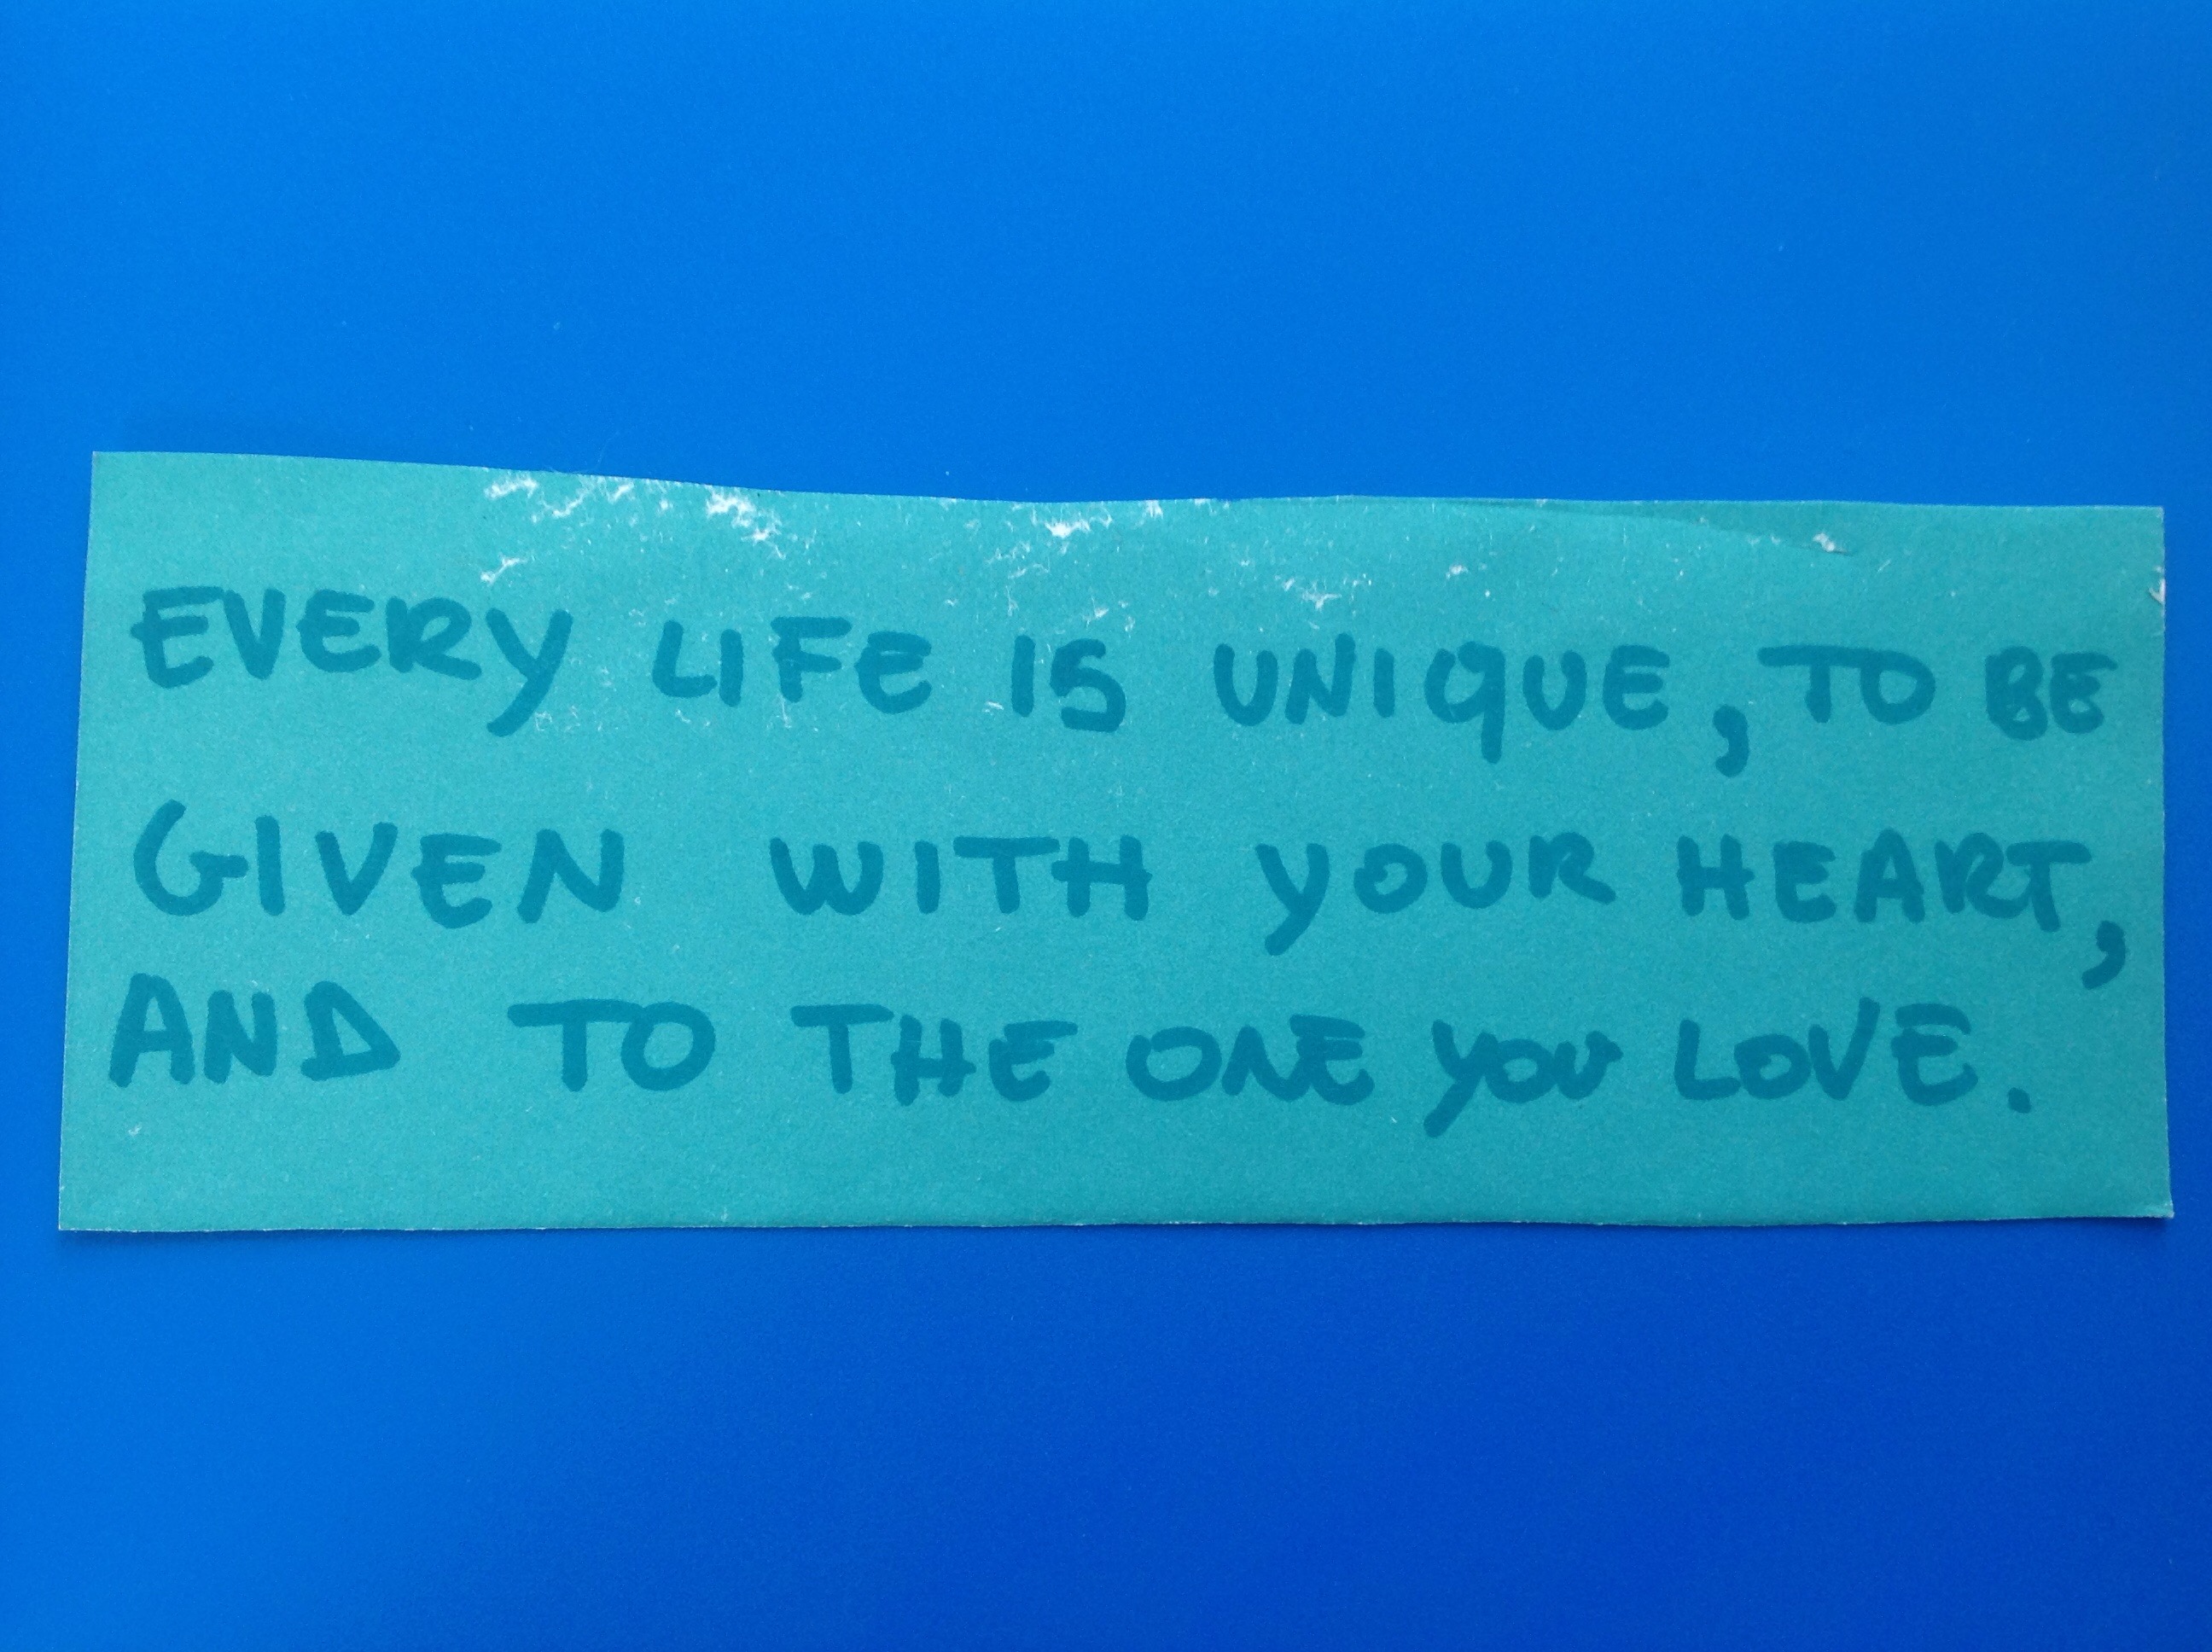 EVERY LIFE IS UNIQUE, TO BE
GIVEN WITH YOUR HEART,
AND TO THE ONE YOU LOVE.